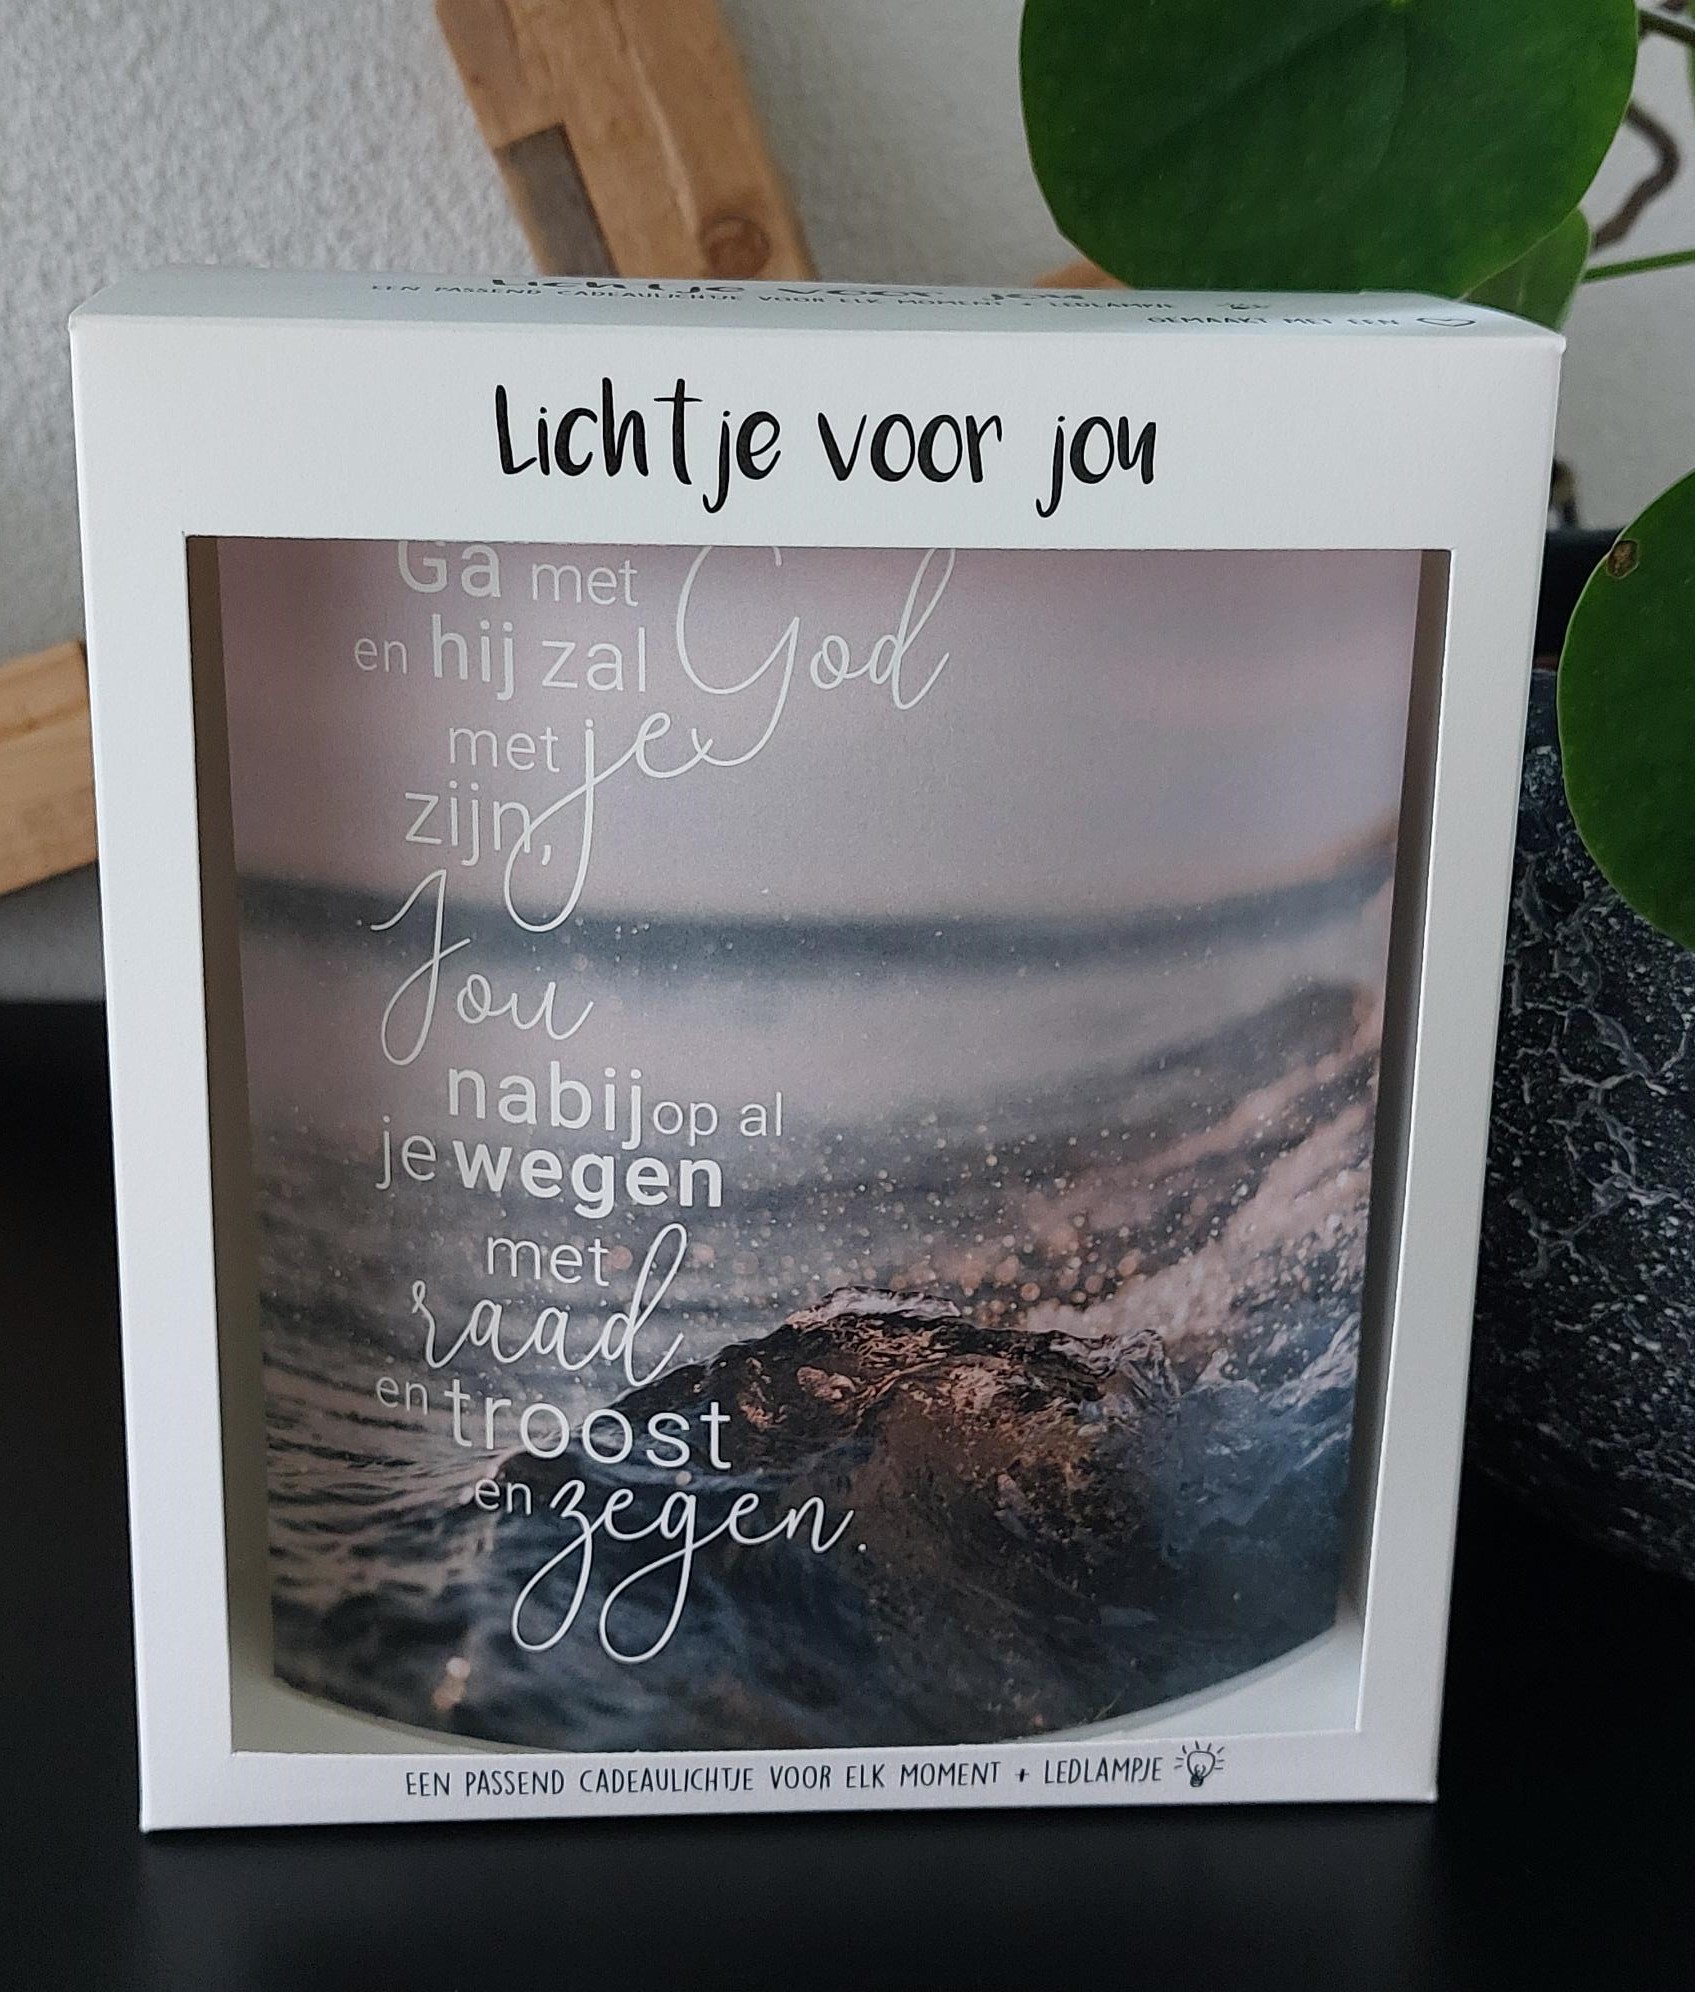 Lichtje voor jou
EEN PASSEND CADEAULICHTJE VOOR ELK MOMENT + LEDLAMPJE
GEMAAKT MET EEN
Lichtje voor jou
Ga met God
en hij zal
met je
zijn,
Jou
nabij op al
je wegen
met
raad
en troost
en zegen.
EEN PASSEND CADEAULICHTJE VOOR ELK MOMENT + LEDLAMPJE